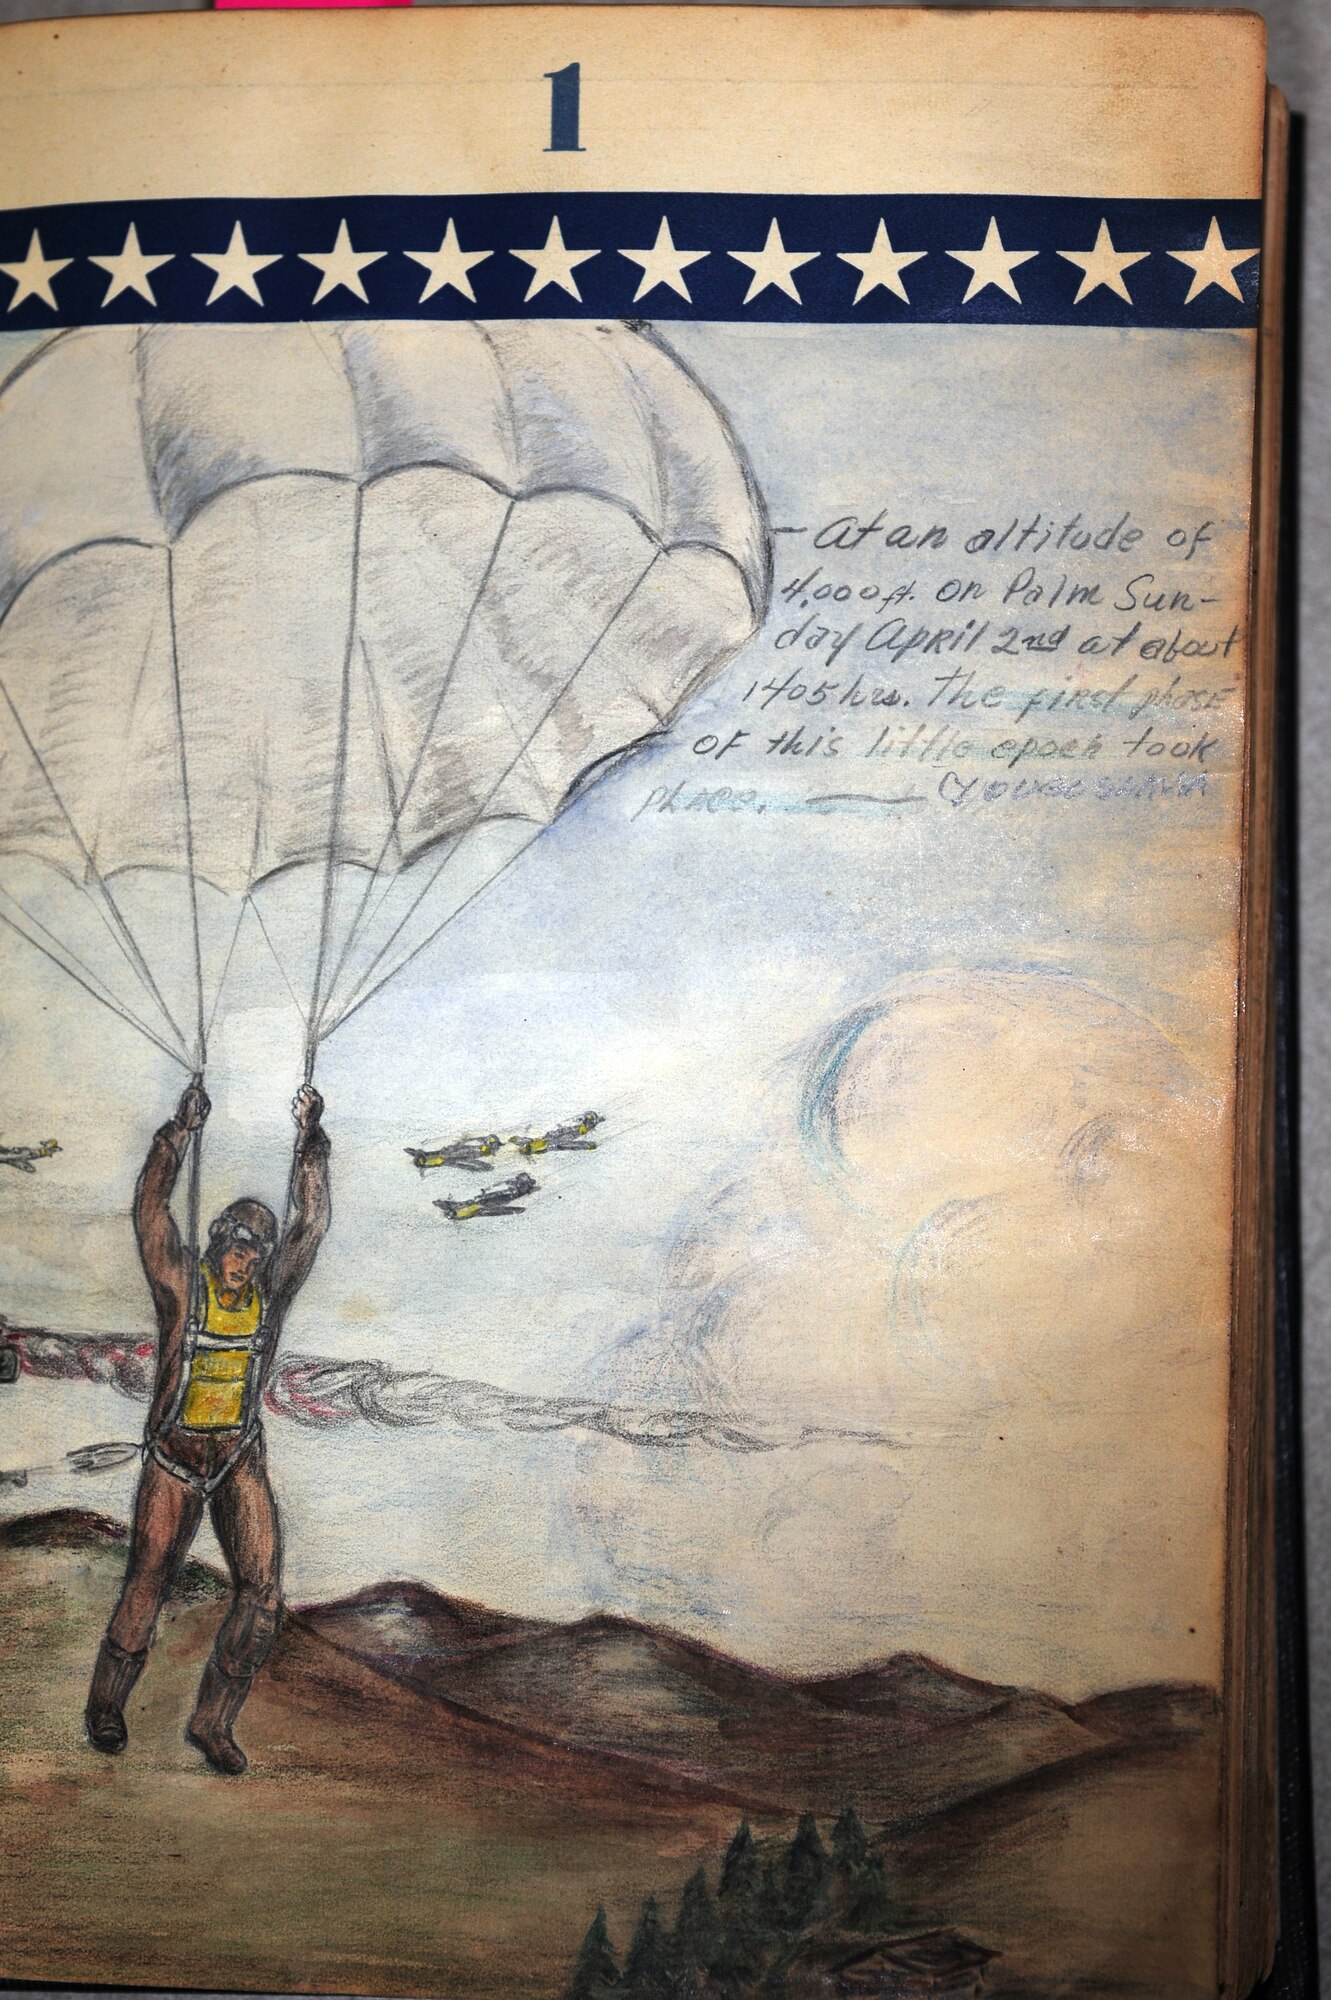 1
- At an altitude of
4,000 ft. on Palm Sun-
day April 2nd at about
1405 hrs. The first phase
of this little epoch took
place. — Yougoslavia